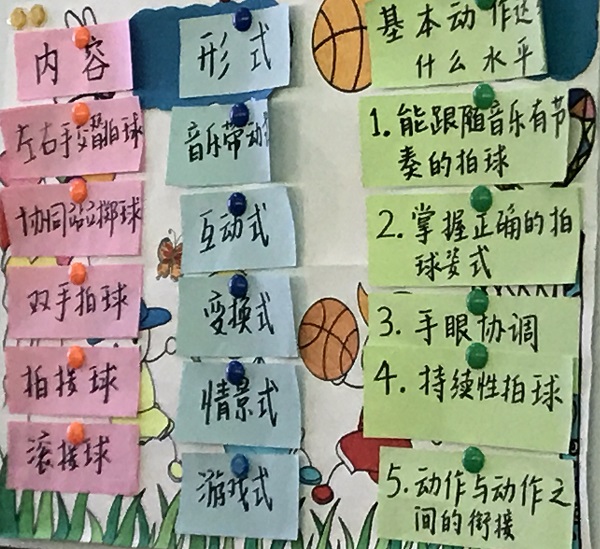 内容
左右手交替拍球
协同站立掷球
双手拍球
拍接球
滚接球
形式
音乐带动
互动式
变换式
情景式
游戏式
基本动作达
什么水平
1.能跟随音乐有节
奏的拍球
2.掌握正确的拍
球姿式
3.手眼协调
4.持续性拍球
5.动作与动作之
间的衔接